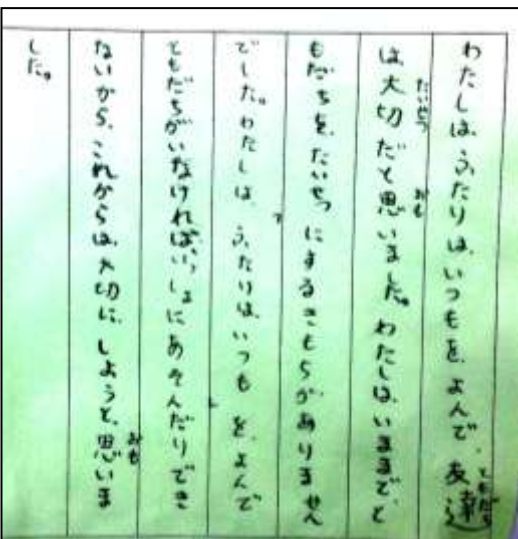 わたしは、ふたりはいつもを、よんで、友達
は大切だと思いました。わたしは、いままで、と
もだちを、たいせつにするきもちがありません
でした。わたしは、ふたりは、いつもを、よんで
ともだちがいなければ、いっしょにあそんだりでき
ないから、これからは、大切に、しようと、思いま
した。